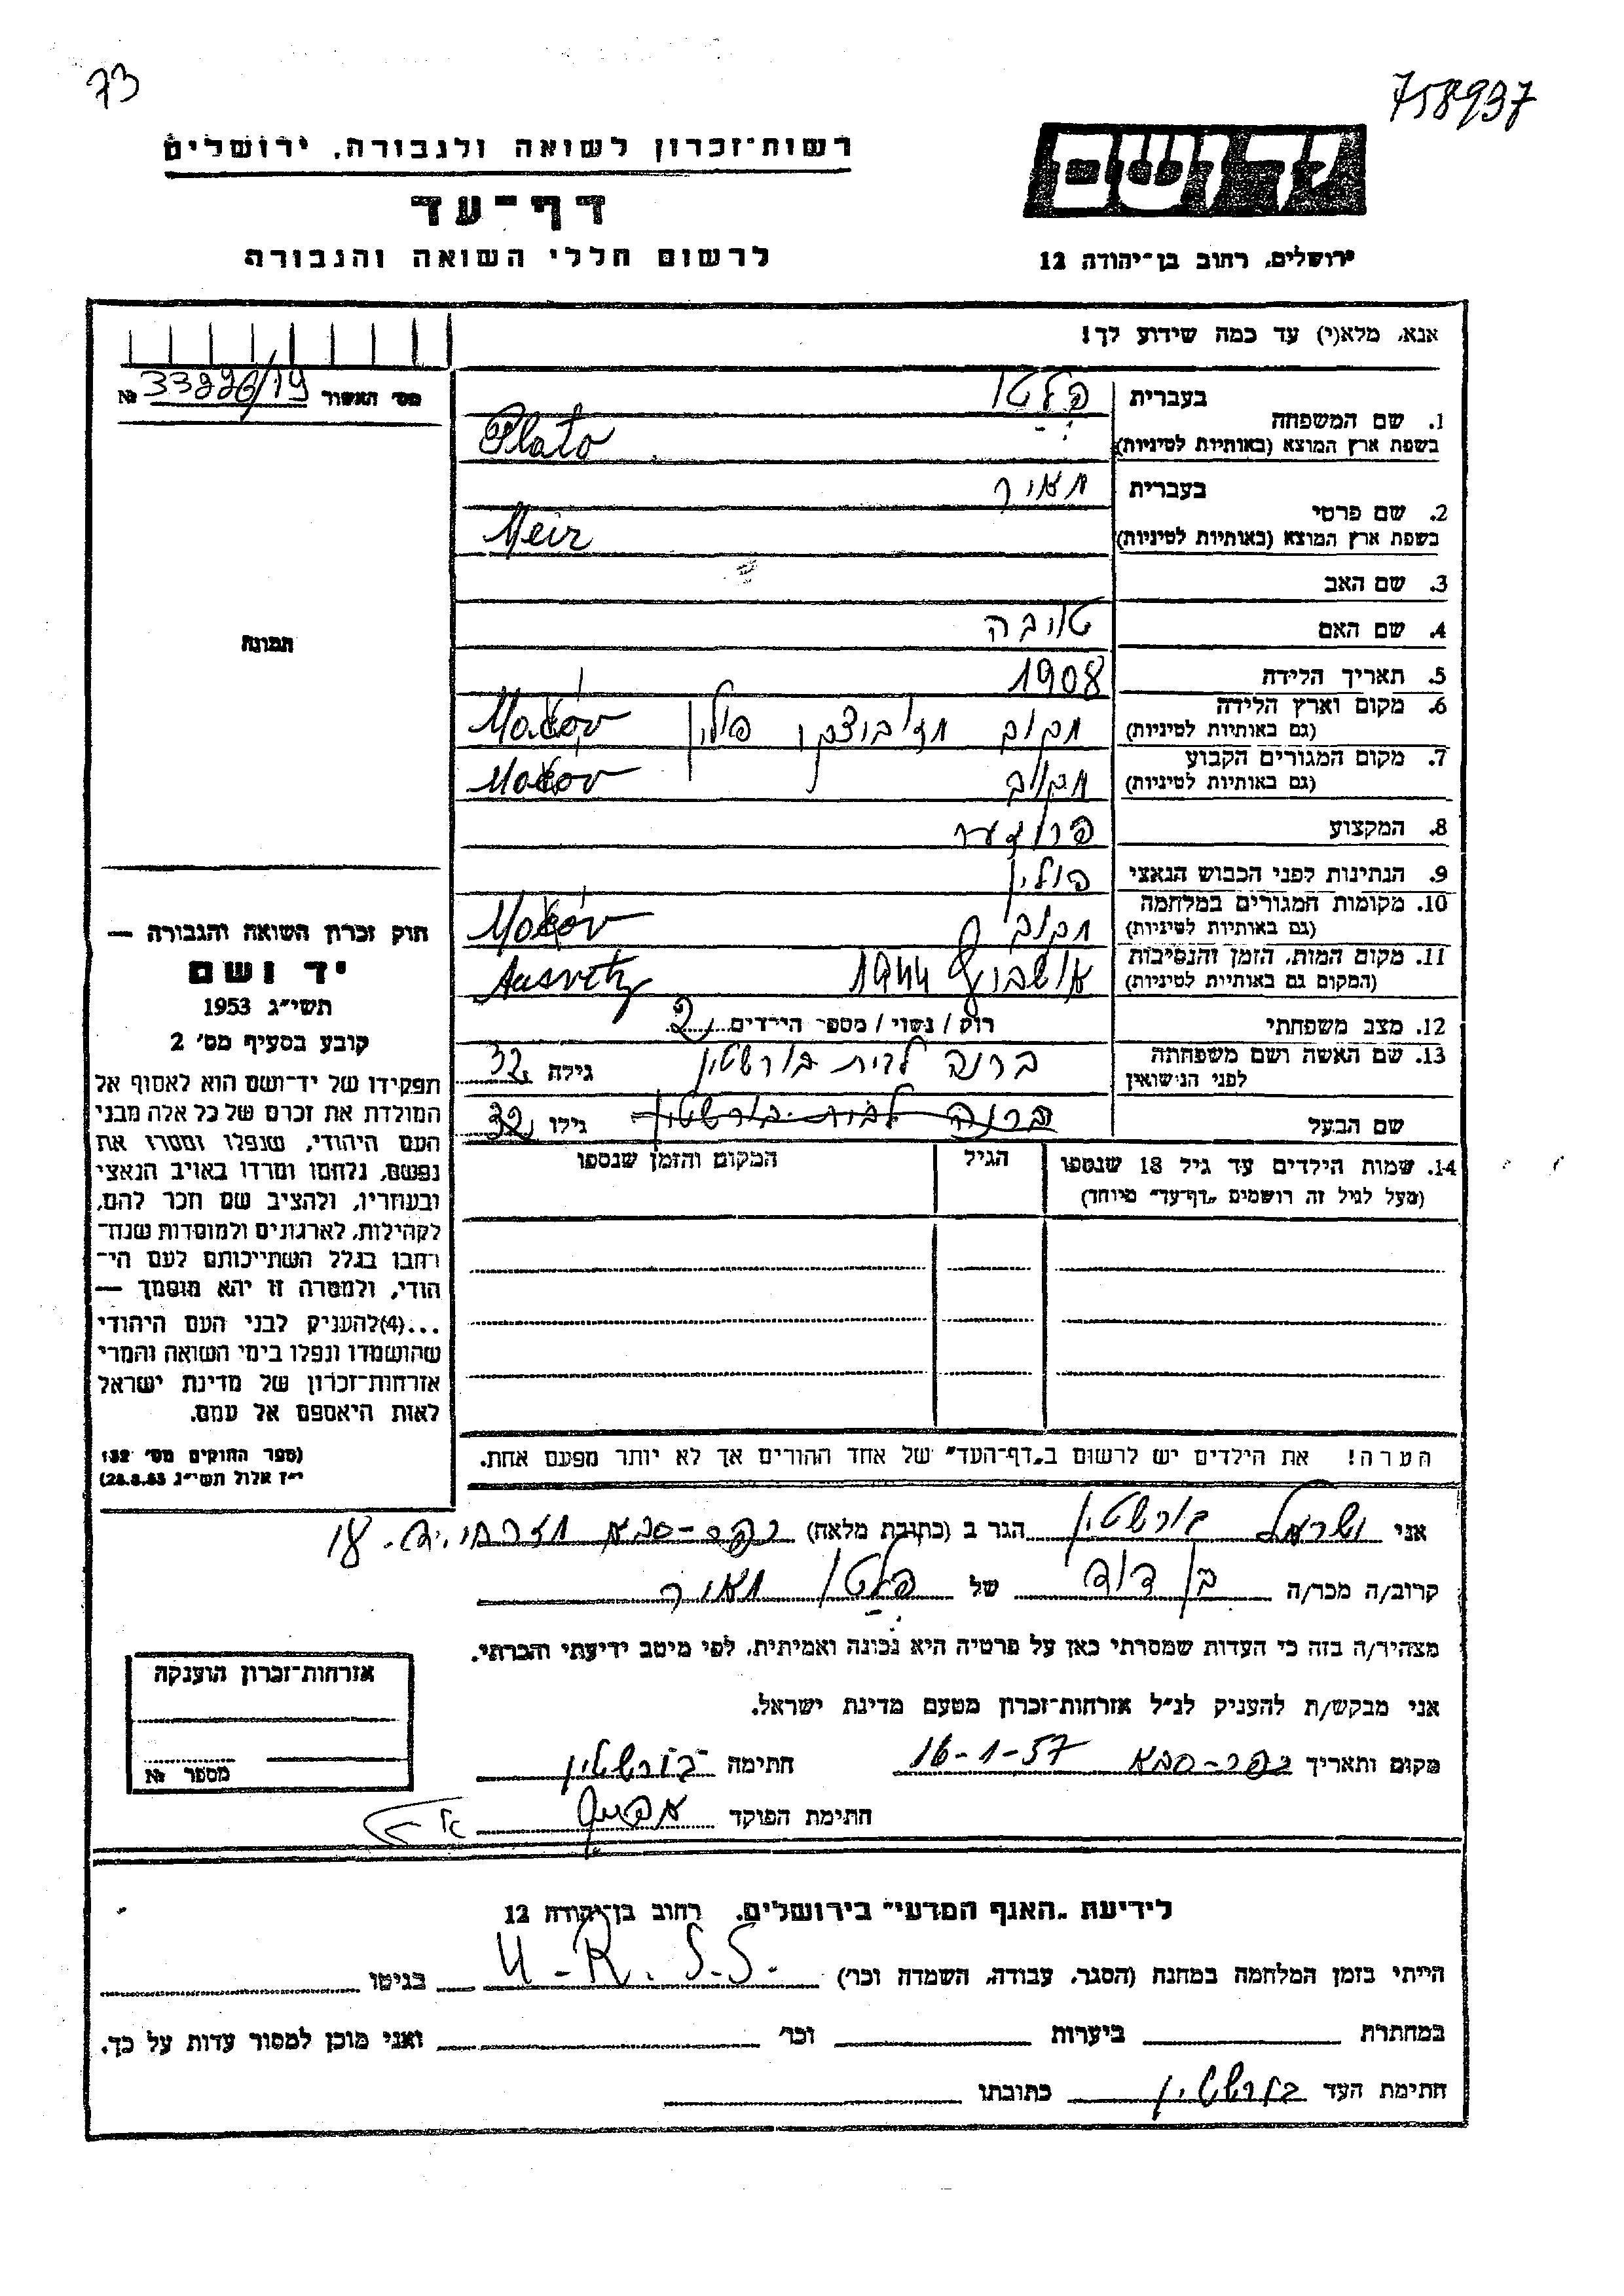 73
758937
רשות־זכרון לשואה ולגבורה, ירושלים
דף־עד
לרשום חללי השואה והגבורה
יד ושם
ירושלים, רחוב בן־יהודה 12
אנא, מלא(י) עד כמה שידוע לך!
מס' האשור № 33226/19
תמונה
1. שם המשפחה
בעברית פלטו
בשפת ארץ המוצא (באותיות לטיניות) Plato
2. שם פרטי
בעברית מאיר
בשפת ארץ המוצא (באותיות לטיניות) Meir
3. שם האב
4. שם האם טובה
5. תאריך הלידה 1908
6. מקום וארץ הלידה
(גם באותיות לטיניות) מקוב מזוביצקי פולין Makóv
7. מקום המגורים הקבוע
(גם באותיות לטיניות) מקוב Makóv
8. המקצוע
9. הנתינות לפני הכבוש הנאצי פולין
10. מקומות המגורים במלחמה
(גם באותיות לטיניות) מקוב Makóv
11. מקום המות, הזמן והנסיבות
(המקום גם באותיות לטיניות) אושביץ 1944 Ausvitz
12. מצב משפחתי רוק / נשוי / מספר הילדים 2
13. שם האשה ושם משפחתה
לפני הנישואין ברנה לבית בורשטין גילה 32
שם הבעל ברנה לבית בורשטין גילו 32
14. שמות הילדים עד גיל 18 שנספו
(מעל לגיל זה רושמים „דף־עד" מיוחד)
הגיל
המקום והזמן שנספו
חוק זכרון השואה והגבורה —
יד ושם
תשי"ג 1953
קובע בסעיף מס' 2
תפקידו של יד־ושם הוא לאסוף אל
המולדת את זכרם של כל אלה מבני
העם היהודי, שנפלו ומסרו את
נפשם, נלחמו ומרדו באויב הנאצי
ובעוזריו, ולהציב שם וזכר להם,
לקהילות, לארגונים ולמוסדות שנח־
רבו בגלל השתייכותם לעם הי־
הודי, ולמטרה זו יהא מוסמך —
...(4)להעניק לבני העם היהודי
שהושמדו ונפלו בימי השואה והמרי
אזרחות־זכרון של מדינת ישראל
לאות היאספם אל עמם.
(ספר החוקים מס' 132
י"ז אלול תשי"ג 28.8.53)
הערה! את הילדים יש לרשום ב„דף־העד" של אחד ההורים אך לא יותר מפעם אחת.
אני ישראל בורשטין הגר ב (כתובת מלאה) כפר-סבא 18
קרוב/ה מכר/ה בן דוד של פלטו מאיר
מצהיר/ה בזה כי העדות שמסרתי כאן על פרטיה היא נכונה ואמיתית, לפי מיטב ידיעתי והכרתי.
אני מבקש/ת להעניק לנ"ל אזרחות־זכרון מטעם מדינת ישראל.
מקום ותאריך כפר-סבא 16-1-57 חתימה בורשטין
חתימת הפוקד
אזרחות־זכרון הוענקה
מספר №
לידיעת „האגף המדעי" בירושלים, רחוב בן־יהודה 12
הייתי בזמן המלחמה במחנה (הסגר, עבודה, השמדה וכו') U-R.S.S. בגיטו
במחתרת ביערות וכו' ואני מוכן למסור עדות על כך.
חתימת העד בורשטין כתובתו